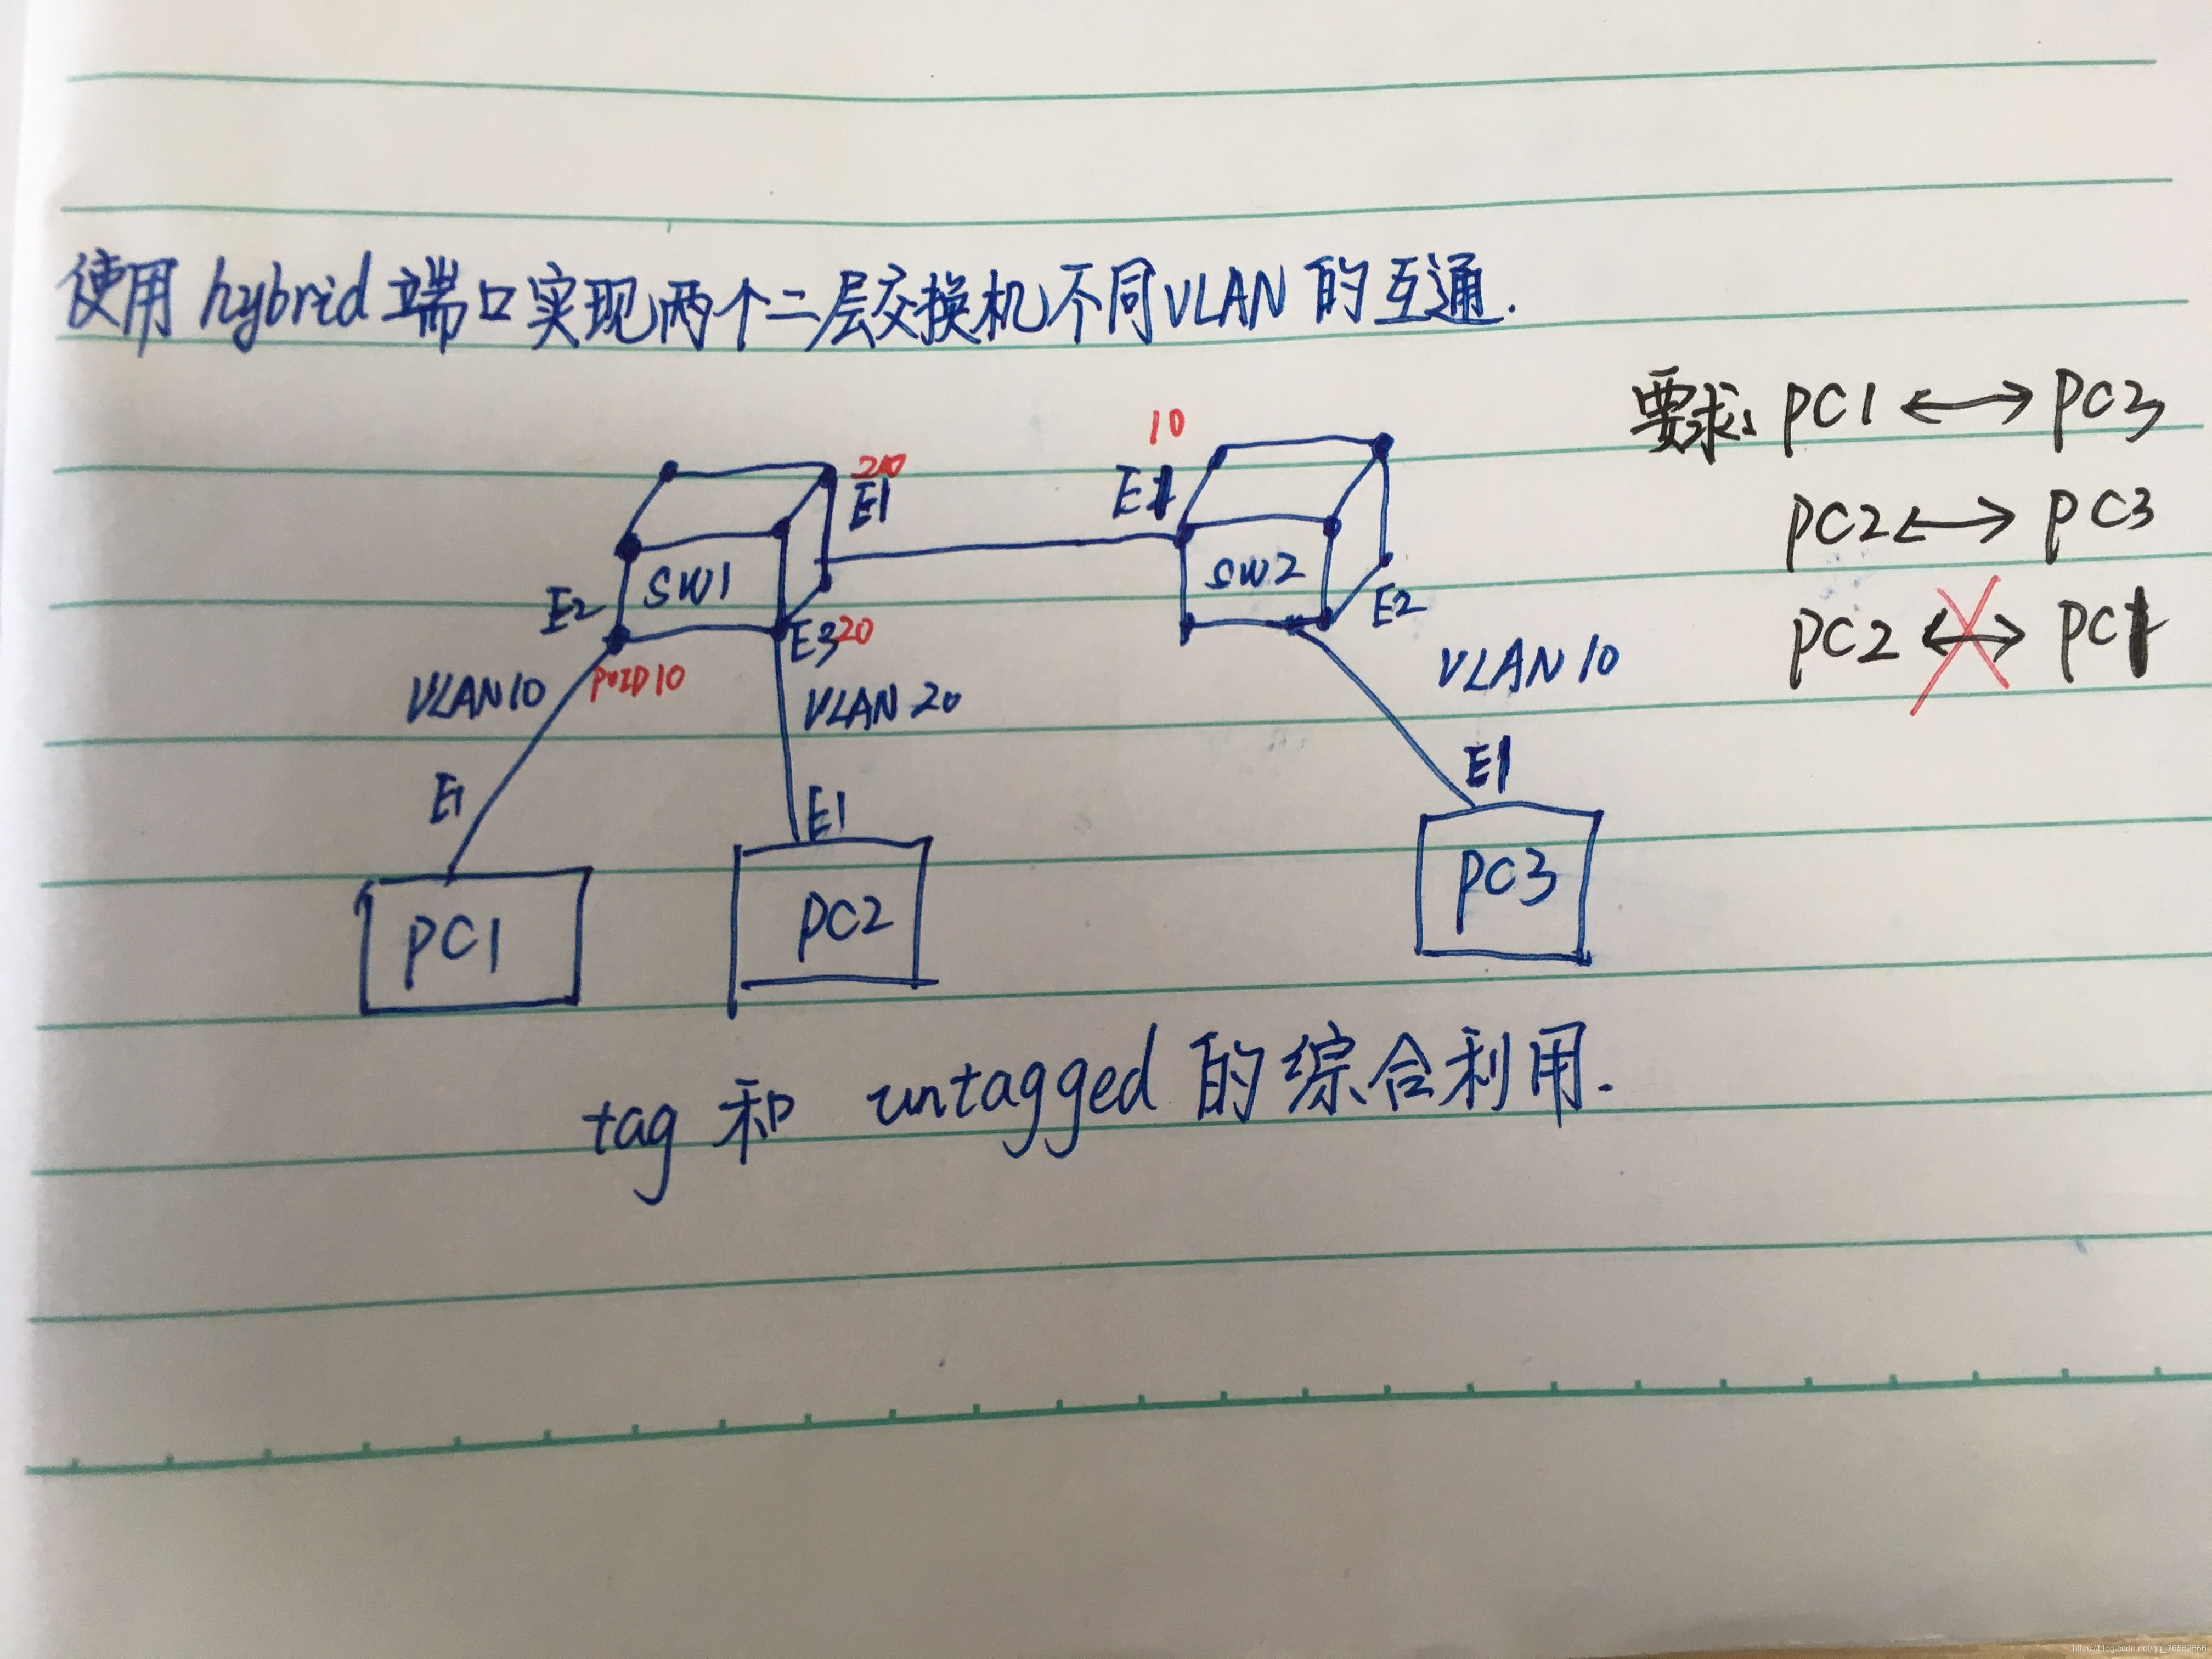 使用 hybrid 端口实现两个二层交换机不同VLAN 的互通.
要求: PC1 ↔ PC3
PC2 ↔ PC3
PC2 ↔ PC1
10
E1
E1
SW1
SW2
E2
E3 20
E2
PVID 10
VLAN10
VLAN 20
VLAN 10
E1
E1
E1
PC1
PC2
PC3
tag 和 untagged 的综合利用.
https://blog.csdn.net/qq_36552666